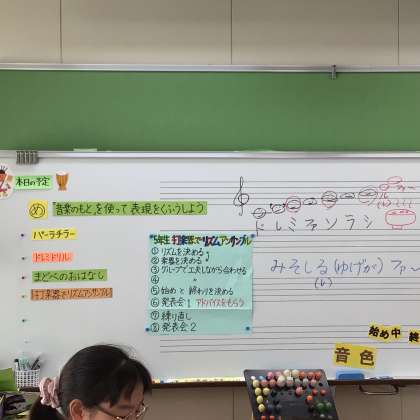 本日の予定
め "音楽のもと"を使って表現をくふうしよう
パーラチラー
ドレミドリル
まどべのおはなし
打楽器でリズムアンサンブル
5年生 打楽器でリズムアンサンブル
① リズムを決める
② 楽器を決める
③ グループで工夫しながら合わせる
④ 〃
⑤ 始めと終わりを決める
⑥ 発表会1 アドバイスをもらう
⑦ 練り直し
⑧ 発表会2
ドレミファソラシ
みそしる(ゆげが)ファ〜
(し)
始め 中 終
音色